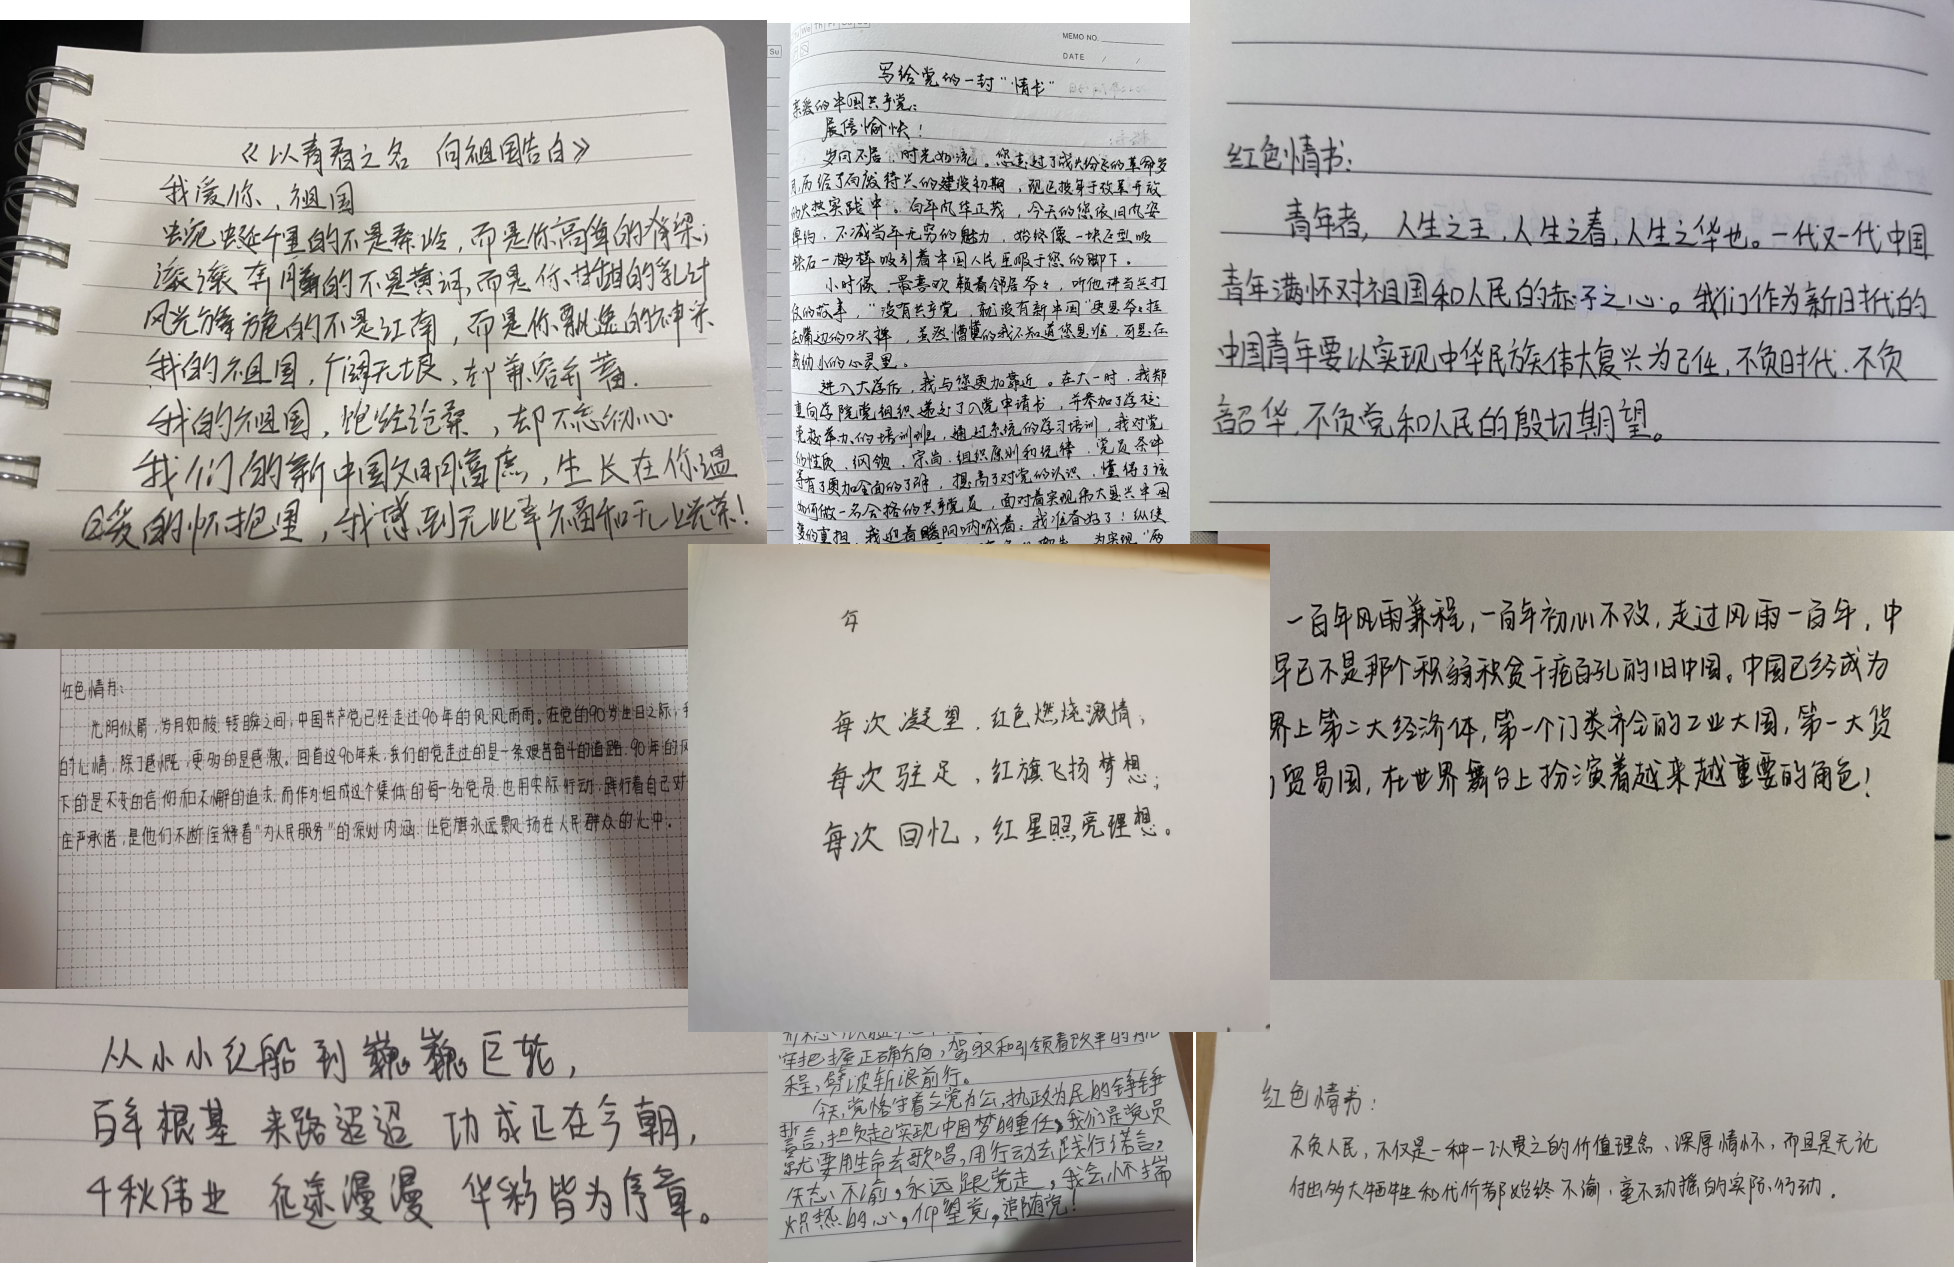 《以青春之名 向祖国告白》
我爱你，祖国
蜿蜒千里的不是秦岭，而是你高耸的脊梁；
滚滚奔腾的不是黄河，而是你甘甜的乳汁
风光旖旎的不是江南，而是你飘逸的神采
我的祖国，广阔无垠，却兼容并蓄.
我的祖国，饱经沧桑，却不忘初心.
我们的新中国文明富庶，生长在你温
暖的怀抱里，我感到无比幸福和无上光荣！
MEMO NO.
DATE / /
写给党的一封“情书”
亲爱的中国共产党：
展信愉快！
岁月不居，时光如流。您走过了战火纷飞的革命岁
月，历经了百废待兴的建设初期，现已投身于改革开放
的火热实践中。百年风华正茂，今天的您依旧风姿
绰约，不减当年无穷的魅力，始终像一块巨型吸
铁石一般样吸引着中国人民至暇于您的脚下。
小时候，最喜欢赖着邻居爷爷，听他讲当兵打
仗的故事，“没有共产党，就没有新中国”更是爷爷挂
在嘴边的口头禅，虽然懵懂的我不知道您是谁，可是在
我幼小的心灵里。
进入大学后，我与您更加靠近。在大一时，我郑
重向学院党组织递交了入党申请书，并参加了学校
党校举办的培训班，通过系统的学习培训，我对党
的性质、纲领、宗旨、组织原则和纪律、党员条件
等有了更加全面的了解，提高了对党的认识，懂得了该
如何做一名合格的共产党员，面对着实现伟大复兴中国
梦的重担，我迎着暖阳呐喊着：我准备好了！纵使
为实现“两
红色情书：
青年者，人生之王，人生之春，人生之华也。一代又一代中国
青年满怀对祖国和人民的赤子之心。我们作为新时代的
中国青年要以实现中华民族伟大复兴为己任，不负时代，不负
韶华，不负党和人民的殷切期望。
红色情书：
光阴似箭，岁月如梭，转眼之间，中国共产党已经走过90年的风风雨雨。在党的90岁生日之际，我
的心情，除了感慨，更多的是感激。回首这90年来，我们的党走过的是一条艰苦奋斗的道路，90年的风
下的是不变的信仰和不懈的追求，而作为组成这个集体的每一名党员，也用实际行动，践行着自己对
庄严承诺，是他们不断诠释着“为人民服务”的深刻内涵，让党旗永远飘扬在人民群众的心中。
每
每次凝望，红色燃烧激情；
每次驻足，红旗飞扬梦想；
每次回忆，红星照亮理想。
一百年风雨兼程，一百年初心不改，走过风雨一百年，中
早已不是那个积弱积贫千疮百孔的旧中国。中国已经成为
界上第二大经济体，第一个门类齐全的工业大国，第一大货
贸易国，在世界舞台上扮演着越来越重要的角色！
从小小红船到巍巍巨轮，
百年根基 来路迢迢 功成正在今朝，
千秋伟业 征途漫漫 华彩皆为序章。
年把握正确方向，驾驭和引领着改革的航
程，劈波斩浪前行。
今天，党恪守着立党为公，执政为民的铮铮
誓言，担负起实现中国梦的重任。我们是党员
就要用生命去歌唱，用行动去践行诺言，
矢志不渝，永远跟党走，我会怀揣
炽热的心，仰望党，追随党！
红色情书：
不负人民，不仅是一种一以贯之的价值理念、深厚情怀，而且是无论
付出多大牺牲和代价都始终不渝、毫不动摇的实际行动。